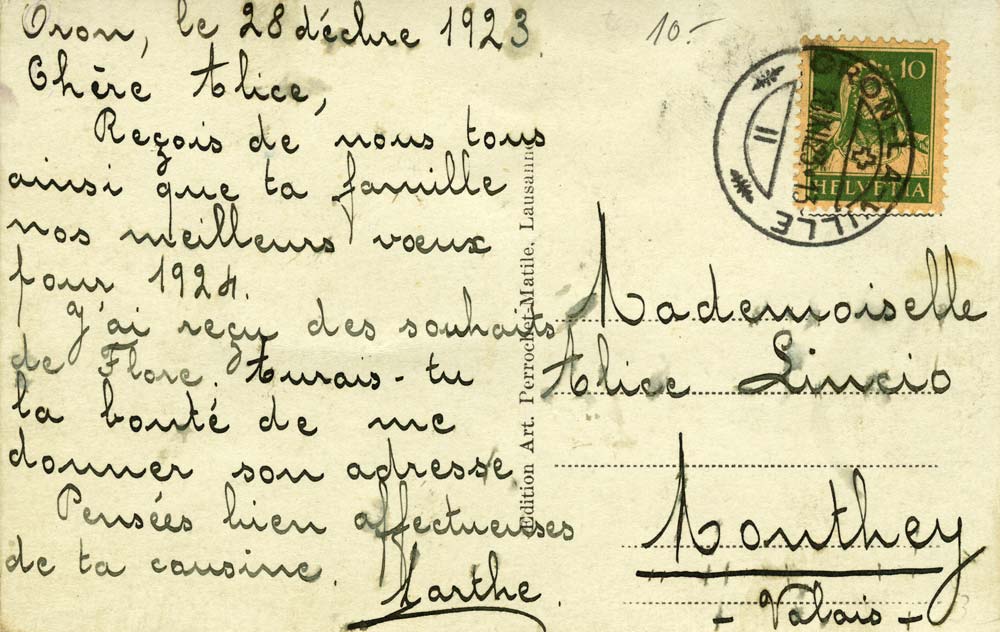 Oron, le 28 décbre 1923.
Chère Alice,
Reçois de nous tous
ainsi que ta famille
nos meilleurs vœux
pour 1924.
J'ai reçu des souhaits
de Flore. Aurais-tu
la bonté de me
donner son adresse.
Pensées bien affectueuses
de ta cousine.
Marthe.
Edition Art. Perrochet-Matile, Lausanne
10.-
10
HELVETIA
ORON-LA-VILLE
II
Mademoiselle
Alice Lincio
Monthey
- Valais -